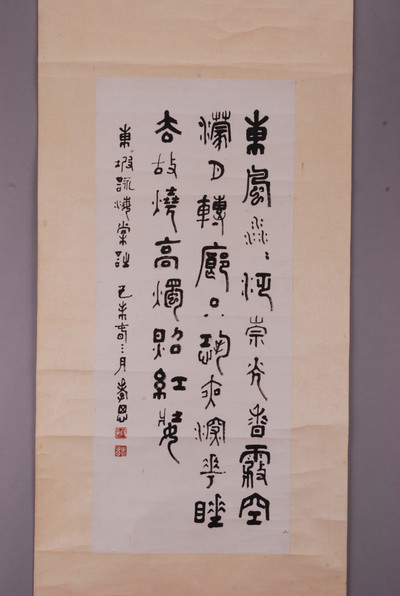 東風嫋嫋泛崇光香霧空
濛月轉廊只恐夜深花睡
去故燒高燭照紅妝
東坡詠海棠詩 己未春三月